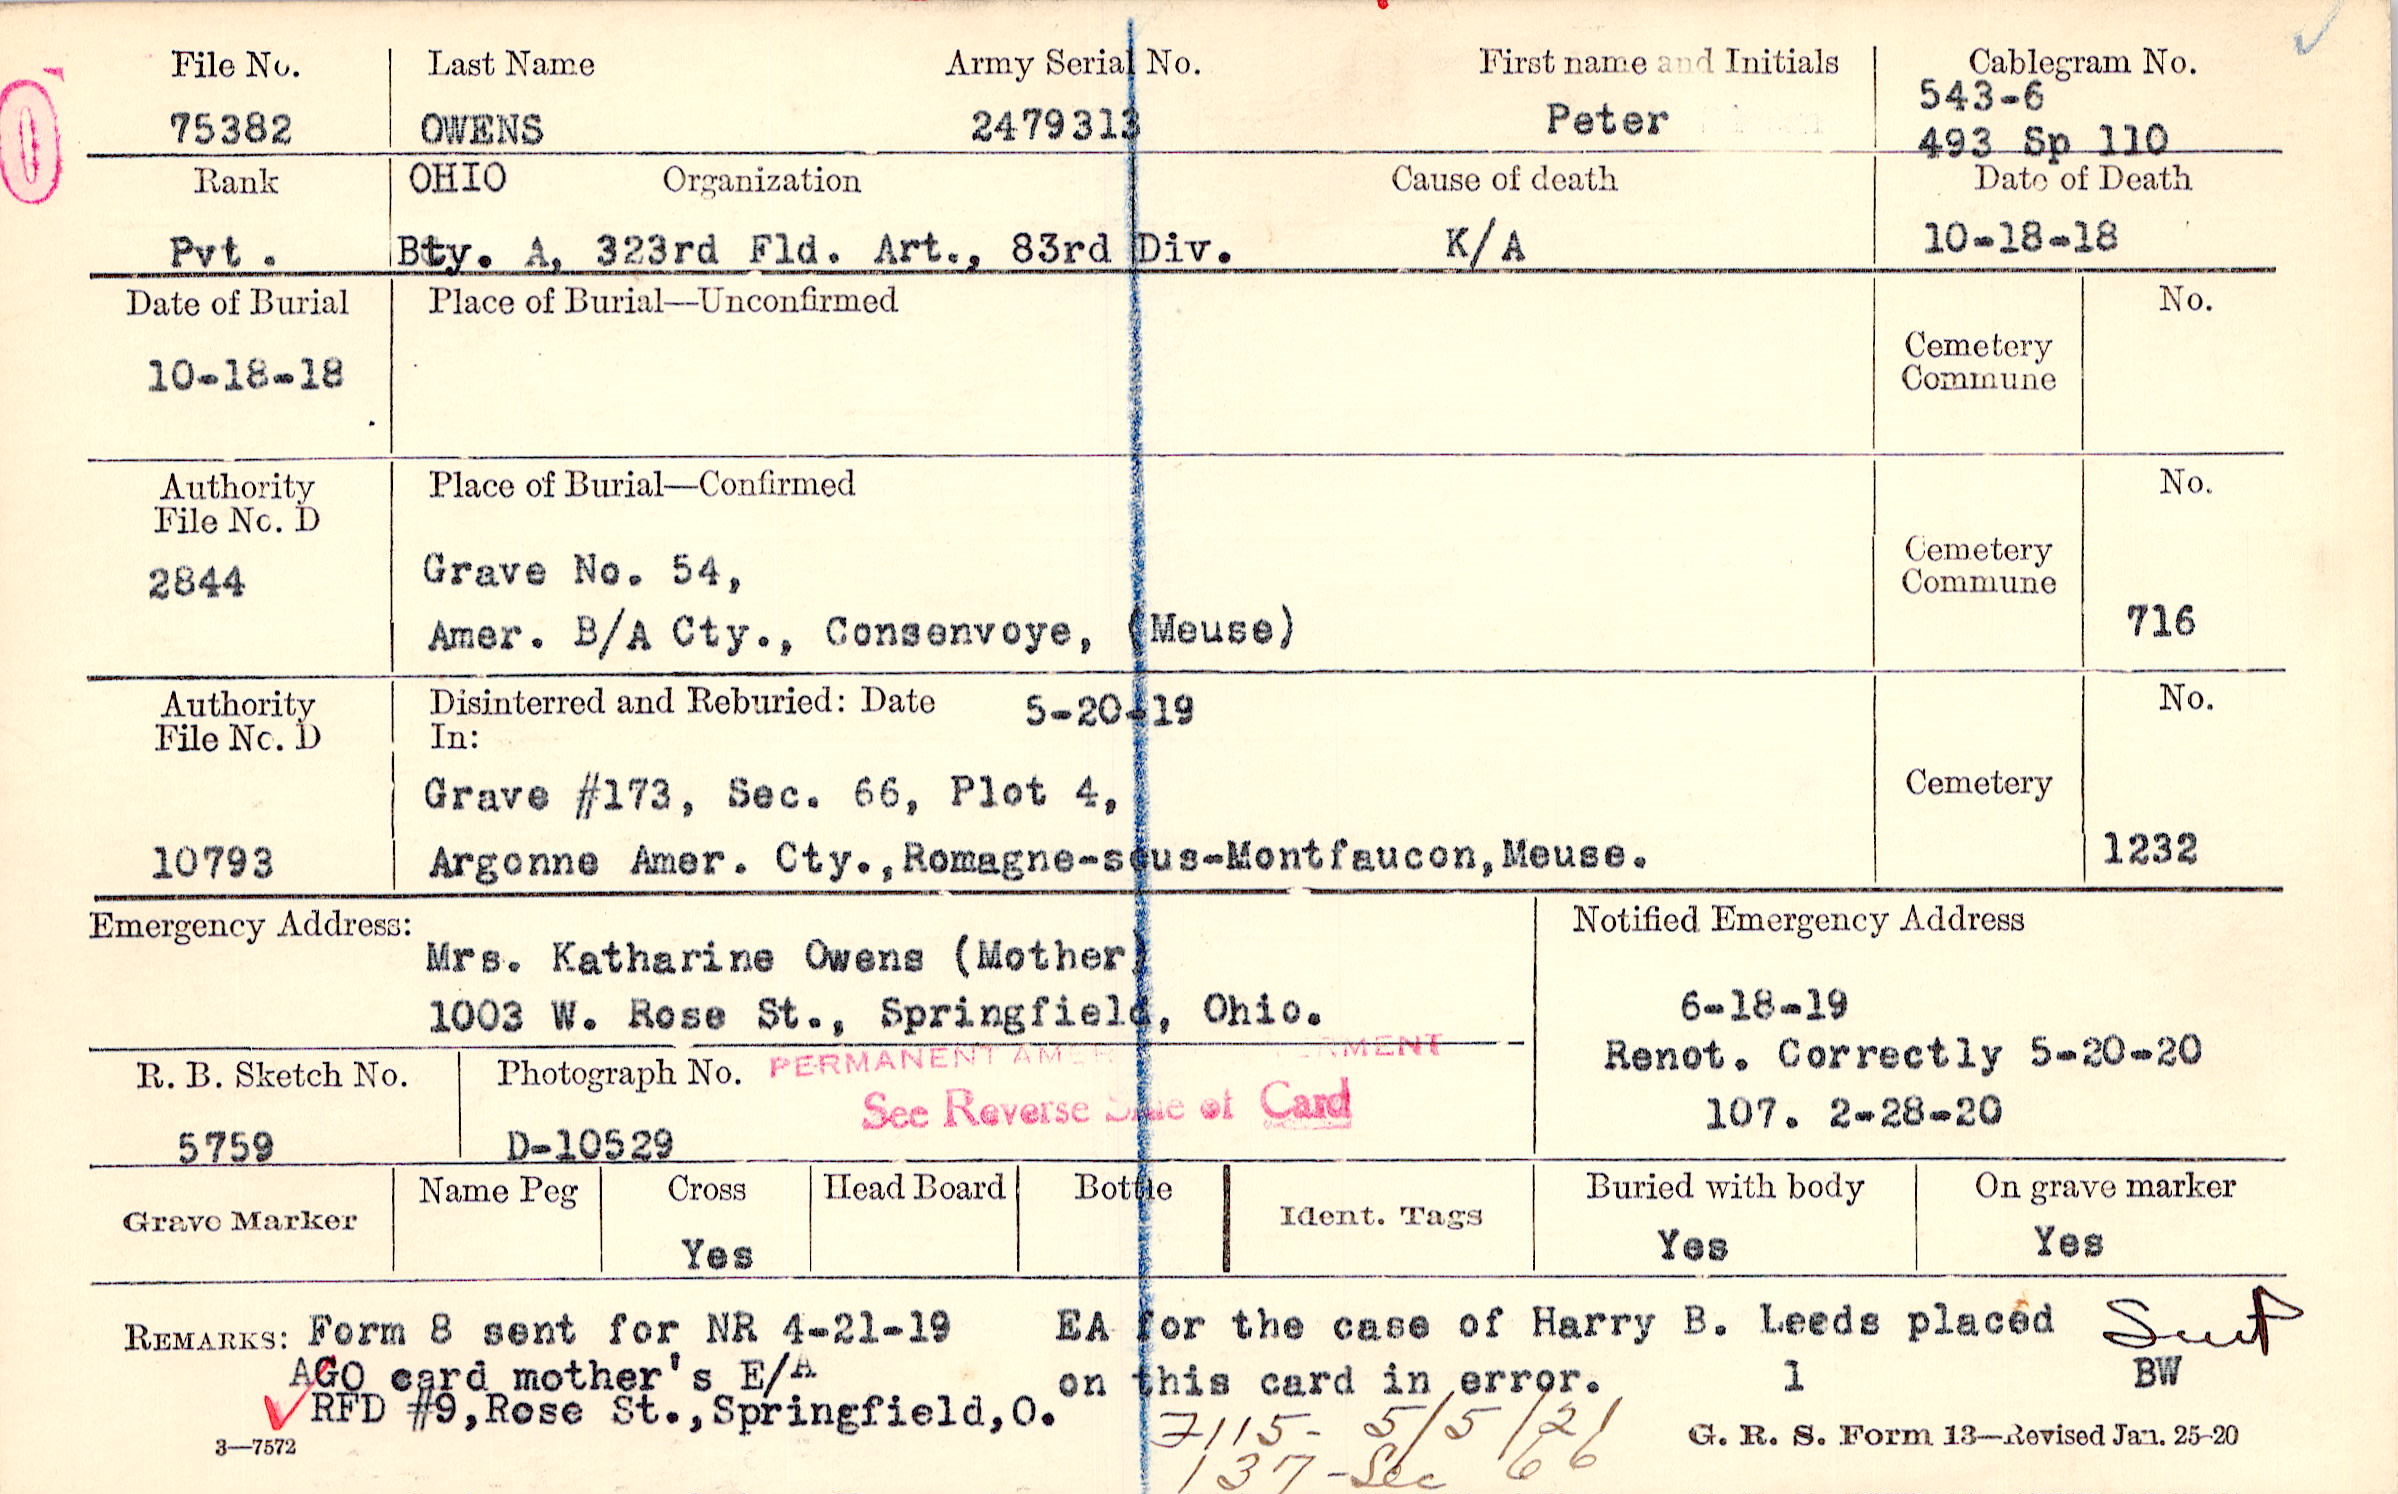 File No. Last Name Army Serial No. First name and Initials Cablegram No.
543-6
75382 OWENS 2479313 Peter 493 Sp 110
Rank OHIO Organization Cause of death Date of Death
Pvt. Bty. A, 323rd Fld. Art., 83rd Div. K/A 10-18-18
Date of Burial Place of Burial—Unconfirmed No.
Cemetery
Commune
10-18-18
Authority Place of Burial—Confirmed No.
File No. D
Cemetery
Commune
2844 Grave No. 54,
Amer. B/A Cty., Consenvoye, (Meuse) 716
Authority Disinterred and Reburied: Date 5-20-19 No.
File No. D In:
Grave #173, Sec. 66, Plot 4, Cemetery
10793 Argonne Amer. Cty.,Romagne-sous-Montfaucon,Meuse. 1232
Emergency Address: Notified Emergency Address
Mrs. Katharine Owens (Mother)
1003 W. Rose St., Springfield, Ohio. 6-18-19
Renot. Correctly 5-20-20
107. 2-28-20
R. B. Sketch No. Photograph No. PERMANENT AMER
See Reverse Side of Card
5759 D-10529
Grave Marker Name Peg Cross Head Board Bottle Ident. Tags Buried with body On grave marker
Yes Yes Yes
REMARKS: Form 8 sent for NR 4-21-19 EA for the case of Harry B. Leeds placed Sent
AGO card mother's E/A on this card in error. 1 BW
RFD #9,Rose St.,Springfield,O.
7115- 5/5/21
137-Sec 66
3—7572 G. R. S. Form 13—Revised Jan. 25-20